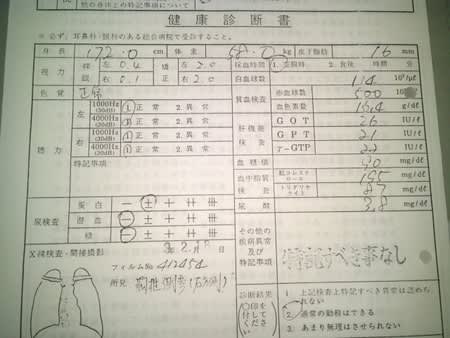 他の各種上の特記事項について
健康診断書
※必ず、耳鼻科・眼科のある総合病院で受診すること。
身長 172.0 cm 体重 kg 皮下脂肪 16 mm
視力 裸 左 0.4 矯 左 2.0 採血時間 ①空腹時、2.食後 時間 分
眼 右 0.1 正 右 2.0 白血球数 10³/μℓ
色覚 正常 貧血検査 赤血球数 500
聴力 左 1000Hz (30dB) ①正常 2異常 血色素量 15.4 g/dℓ
4000Hz (30dB) ①正常 2異常 肝機能検査 GOT 26 IU/ℓ
右 1000Hz (30dB) ①正常 2異常 GPT 21 IU/ℓ
4000Hz (30dB) ①正常 2異常 γ-GTP 22 IU/ℓ
特記事項 血糖値 90 mg/dℓ
血中脂質検査 総コレステロール 195 mg/dℓ
トリグリセライド 87 mg/dℓ
尿検査 蛋白 − ± + ++ +++ 尿酸 3.8 mg/dℓ
潜血 − ± + ++ +++
糖 − ± + ++ +++ その他の疾病異常及び特記事項 特記すべき事なし
X線検査・間接撮影
フィルムNo 412454
所見
診断結果 (○印を付してください) 1 上記検査上特記すべき異常は認められない
2 通常の勤務はできる
3 あまり無理はさせられない